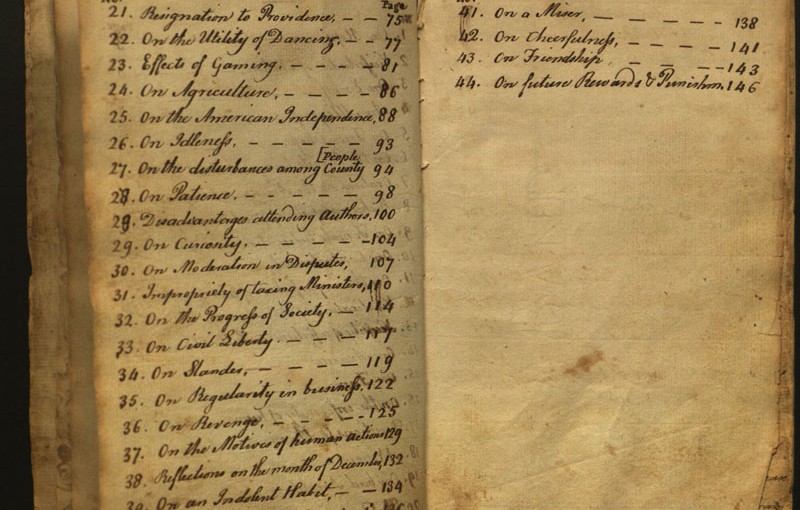 Page
21. Resignation to Providence, — — 75
22. On the Utility of Dancing, — — 77
23. Effects of Gaming. — — — — 81
24. On Agriculture, — — — — 86
25. On the American Independence, 88
26. On Idleness. — — — — — 93
[People
27. On the disturbances among County 94
28. On Patience. — — — — — 98
29. Disadvantages attending Authors, 100
29. On Curiosity. — — — — — 104
30. On Moderation in Disputes, 107
31. Impropriety of taxing Ministers, 110
32. On the Progress of Society. — 114
33. On Civil Liberty. — — — 117
34. On Slander, — — — — 119
35. On Regularity in business, 122
36. On Revenge, — — — — 125
37. On the Motives of human actions 129
38. Reflections on the month of December, 132
39. On an Indolent Habit, — — 134
41. On a Miser, — — — — — — 138
42. On Cheerfulness, — — — — 141
43. On Friendship — — — — 143
44. On future Rewards & Punishm. 146